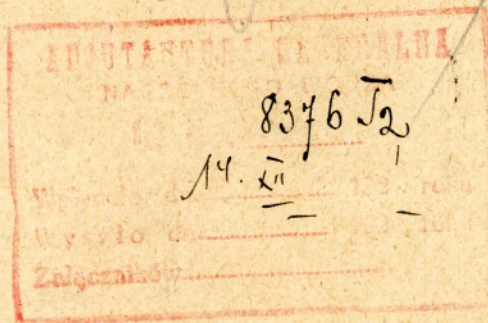 ADJUTANTURA GENERALNA
8376
14. XII
Wpłynęło d. 192 roku
Wyszło dn. 192 rok
Załączników